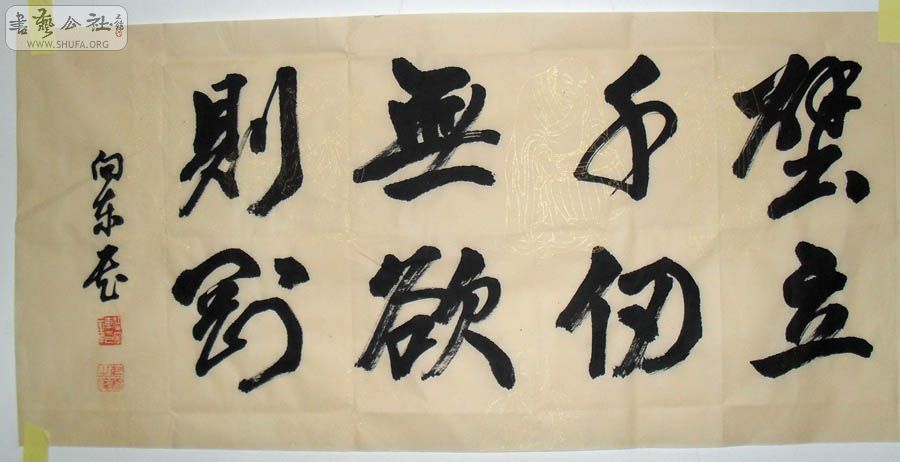 壁立
千仞
無欲
則剛
向東書
書藝公社
WWW.SHUFA.ORG